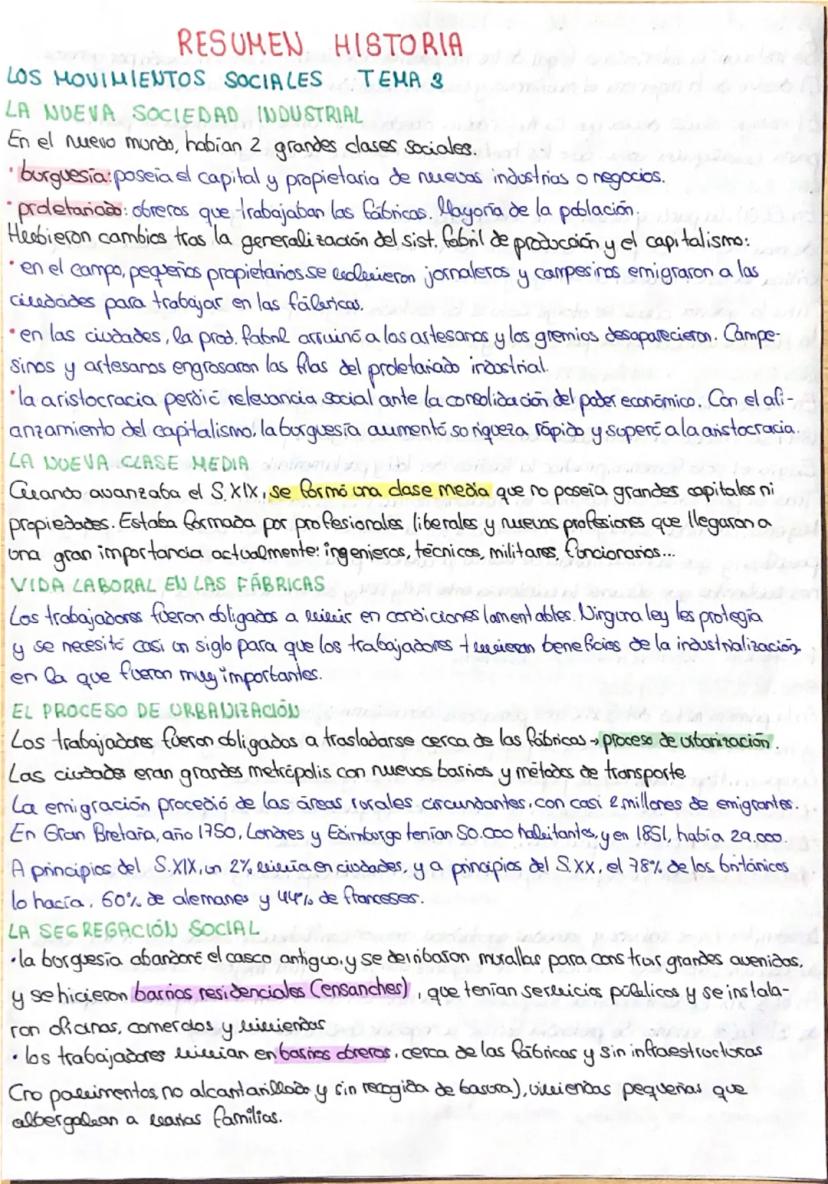 RESUMEN HISTORIA
LOS MOVIMIENTOS SOCIALES TEMA 3
LA NUEVA SOCIEDAD INDUSTRIAL
En el nuevo mundo, habían 2 grandes clases sociales.
· burguesía: poseía el capital y propietaria de nuevas industrias o negocios.
· proletariado: obreros que trabajaban las fábricas. Mayoría de la población.
Hubieron cambios tras la generalización del sist. fabril de producción y el capitalismo:
· en el campo, pequeños propietarios se volvieron jornaleros y campesinos emigraron a las
ciudades para trabajar en las fábricas.
· en las ciudades, la prod. fabril arruinó a los artesanos y los gremios desaparecieron. Campe-
sinos y artesanos engrosaron las filas del proletariado industrial.
· la aristocracia perdió relevancia social ante la consolidación del poder económico. Con el afi-
anzamiento del capitalismo: la burguesía aumentó so riqueza rápido y superó a la aristocracia.
LA NUEVA CLASE MEDIA
Cuando avanzaba el S.XIX, se formó una clase media que no poseía grandes capitales ni
propiedades. Estaba formada por profesionales, liberales y nuevas profesiones que llegaron a
una gran importancia actualmente: ingenieros, técnicos, militares, funcionarios...
VIDA LABORAL EN LAS FÁBRICAS
Los trabajadores fueron obligados a vivir en condiciones lamentables. Ninguna ley les protegía
y se necesitó casi un siglo para que los trabajadores tuvieran beneficios de la industrialización
en la que fueron muy importantes.
EL PROCESO DE URBANIZACIÓN
Los trabajadores fueron obligados a trasladarse cerca de las fábricas → proceso de urbanización.
Las ciudades eran grandes metrópolis con nuevos barrios y métodos de transporte
La emigración procedió de las áreas rurales circundantes, con casi 2 millones de emigrantes.
En Gran Bretaña, año 1750, Londres y Edimburgo tenían 50.000 habitantes, y en 1851, había 29.000.
A principios del S.XIX, un 2% vivía en ciudades, y a principios del S.XX, el 78% de los británicos
lo hacía, 60% de alemanes y 44% de franceses.
LA SEGREGACIÓN SOCIAL
· la burguesía abandonó el casco antiguo, y se derribaron murallas para construir grandes avenidas,
y se hicieron barrios residenciales (ensanches), que tenían servicios públicos y se instala-
ron oficinas, comercios y viviendas
· los trabajadores vivían en barrios obreros, cerca de las fábricas y sin infraestructuras
(no pavimentos, no alcantarillado y sin recogida de basura), viviendas pequeñas que
albergaban a varias familias.